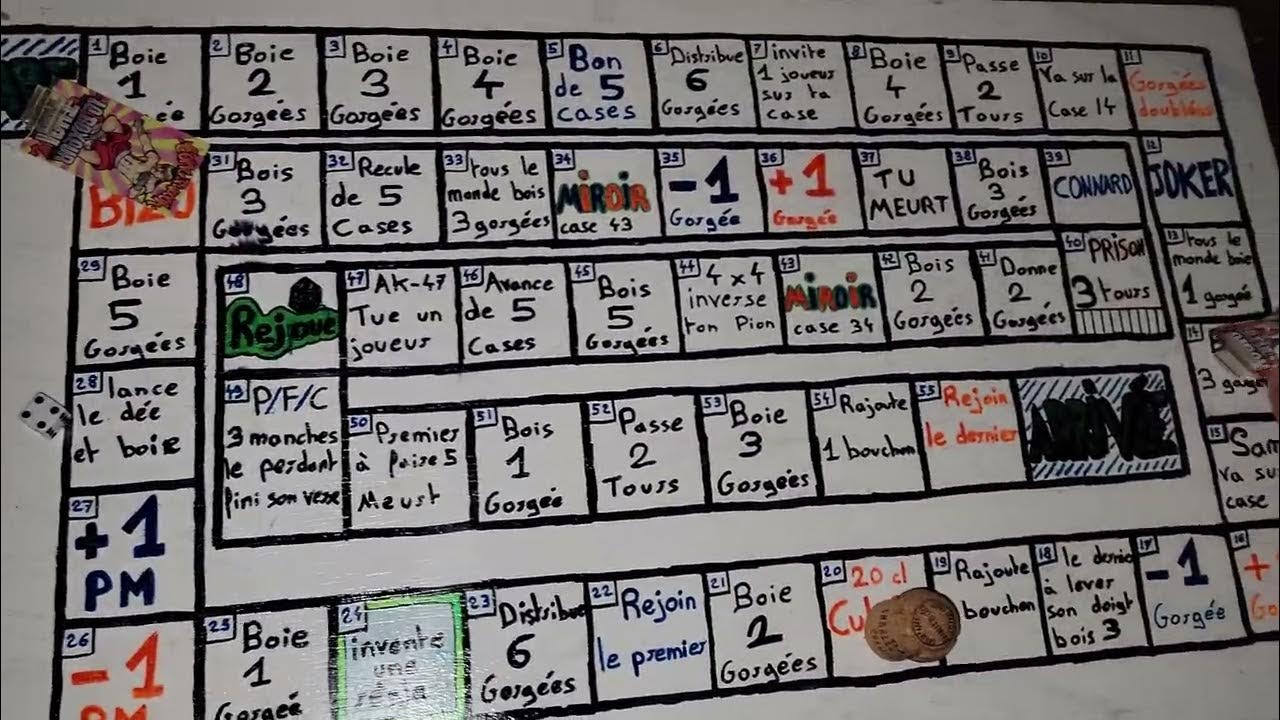 1 Boie
1
ée
2 Boie
2
Gorgées
3 Boie
3
Gorgées
4 Boie
4
Gorgées
5 Bon
de 5
cases
6 Distribue
6
Gorgées
7 invite
1 joueur
sur ta
case
8 Boie
4
Gorgées
9 Passe
2
Tours
10
Va sur la
Case 14
11
Gorgées
doublées
12
JOKER
13 tous le
monde boie
1 gorgée
14
3
15
va su
case
16
+
17
-1
Gorgée
18 le dernie
à lever
son doigt
bois 3
19 Rajoute
bouchon
20 20 cl
Cu
21 Boie
2
Gorgées
22 Rejoin
le premier
23 Distribue
6
Gorgées
24
invente
une
25 Boie
1
Gorgée
26
-1
PM
27
+1
PM
28 lance
le dée
et boie
29 Boie
5
Gorgées
31 Bois
3
Gorgées
32 Recule
de 5
Cases
33 tous le
monde bois
3 gorgées
34
MIROIR
case 43
35
-1
Gorgée
36
+1
Gorgée
37
TU
MEURT
38 Bois
3
Gorgées
39
CONNARD
40 PRISON
3 tours
41 Donne
2
Gorgées
42 Bois
2
Gorgées
43
MIROIR
case 34
44 4x4
inverse
ton Pion
45 Bois
5
Gorgées
46 Avance
de 5
Cases
47 AK-47
Tue un
joueur
48
Rejoue
49 P/F/C
3 manches
le perdant
fini son verre
50 Premier
à faire 5
Meurt
51 Bois
1
Gorgée
52 Passe
2
Tours
53 Boie
3
Gorgées
54 Rajoute
1 bouchon
55 Rejoin
le dernier
ARRIVÉ